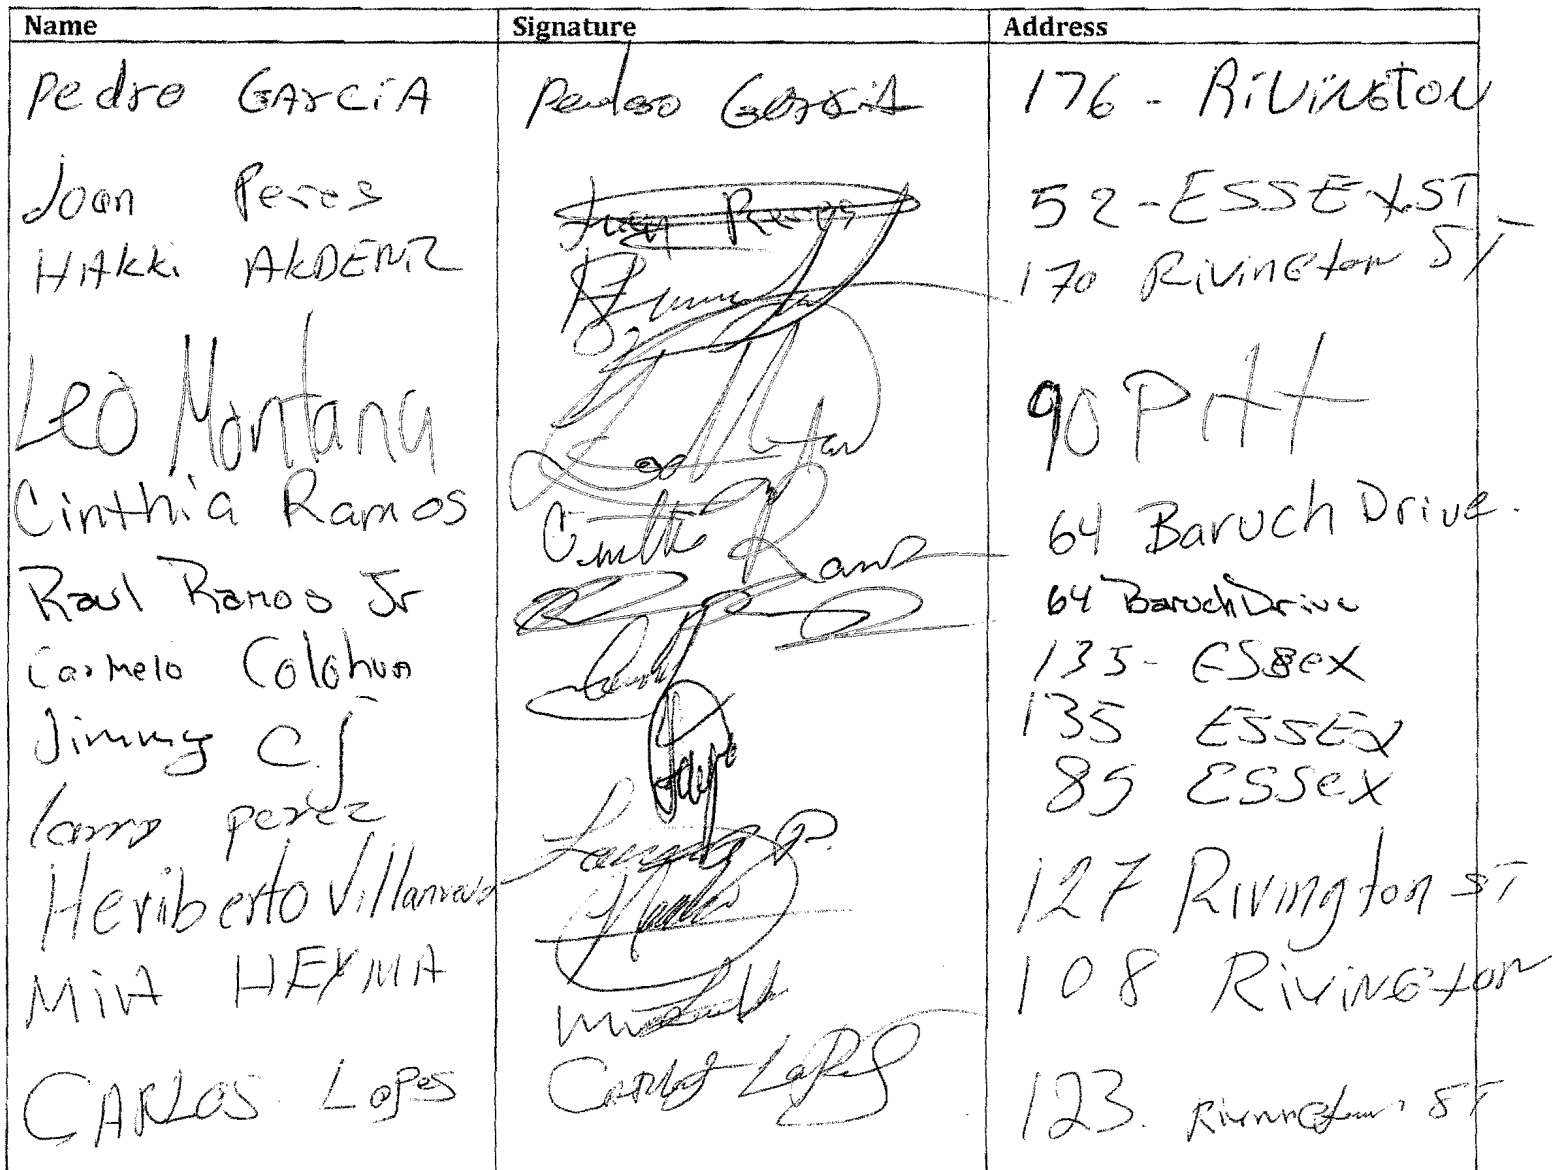 Name Signature Address
Pedro GArCiA Pedro GarciA 176 - RiViNGTON
Joan Peres Juan Peres 52 - ESSEX ST
HAkki AKDENIZ 170 RivinGton ST
Leo Montana Leo 90 Pitt
Cinthia Ramos Cinthia Ramos 64 Baruch Drive.
Raul Ramos Jr 64 Baruch Drive
Carmelo Colohua 135 - ESSex
Jimmy C.J 135 ESSEX
perez P. 85 ESSex
Heriberto Villanueva 127 Rivington ST
MiA HEYMA 108 RiviNGton
CARLOS Lopes Carlos LoPeS 123. RivinGton ST